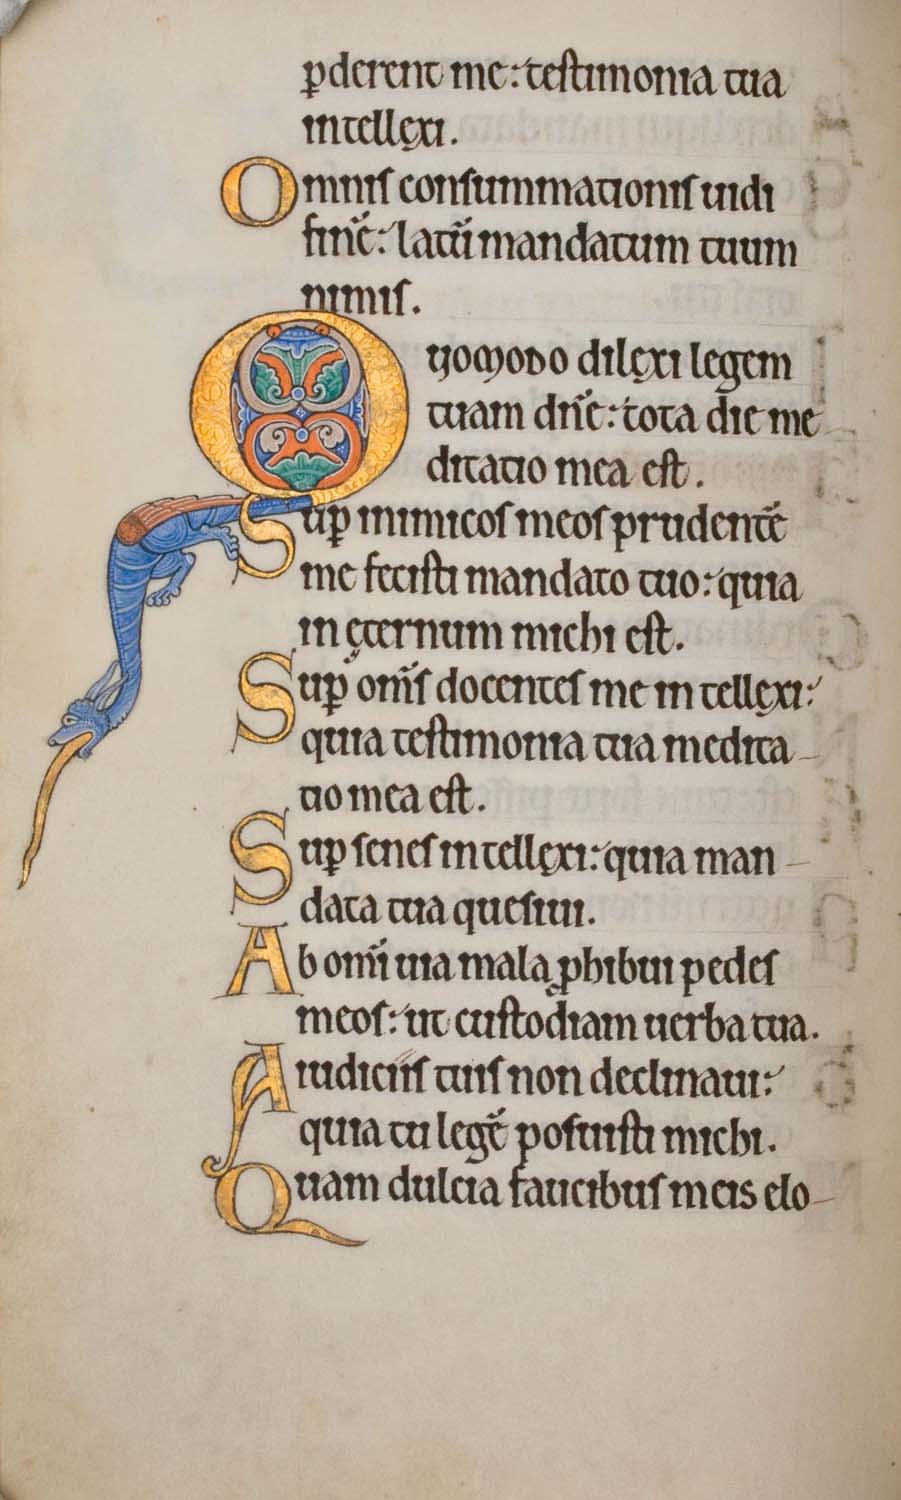 ꝑderent me: testimonia tua
intellexi.
Omnis consummationis uidi
finē: latū mandatum tuum
nimis.
Quomodo dilexi legem
tuam dn̄e: tota die me
ditatio mea est.
Suꝑ inimicos meos prudentē
me fecisti mandato tuo: quia
in ęternum michi est.
Suꝑ om̄s docentes me intellexi:
quia testimonia tua medita-
tio mea est.
Suꝑ senes intellęxi: quia man-
data tua quesiui.
Ab om̄i uia mala ꝓhibui pedes
meos: ut custodiam uerba tua.
A iudiciis tuis non declinaui:
quia tu legē posuisti michi.
Quam dulcia faucibus meis elo-